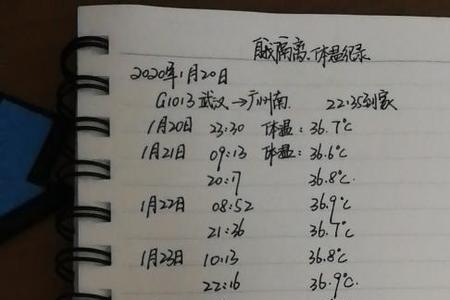 自我隔离、体温纪录
2020年1月20日
G1013 武汉→广州南 22:35到家
1月20日 23:30 体温：36.7℃
1月21日 09:13 体温：36.6℃
20:17 36.8℃.
1月22日 08:52 36.9℃
21:36 36.7℃
1月23日 10:13 36.8℃
22:16 36.9℃.